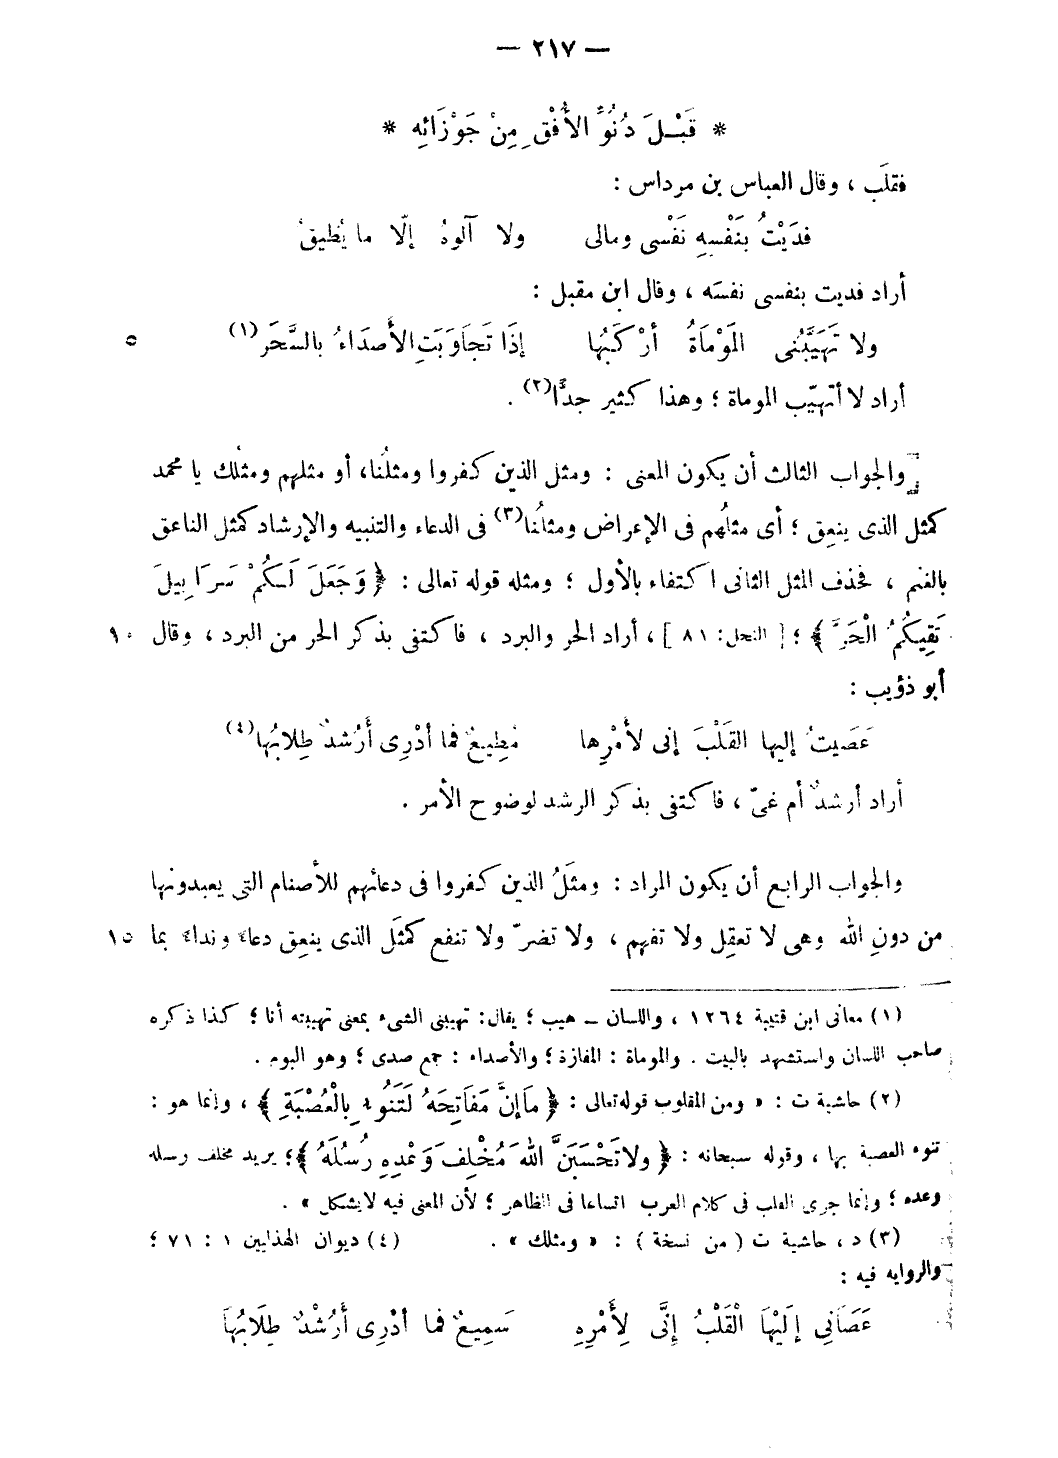 — ٢١٧ —
* قَبْلَ دُنُوِّ الأُفْقِ مِنْ جَوْزَائِهِ *
فقلَب ، وقال العباس بن مرداس :
فدَيْتُ بنَفْسِهِ نَفْسى ومالى ولا آلوهُ إلّا ما يُطيقُ
أراد فديت بنفسى نفسَه ، وقال ابن مقبل :
ولا تَهَيَّبُنى المَوْمَاةُ أرْكَبُها إذَا تَجَاوَبَتِ الأَصدَاءُ بالسَّحَرِ (١) ٥
أراد لا أتهيّب الموماة ؛ وهذا كثير جدًّا (٢) .
والجواب الثالث أن يكون المعنى : ومثل الذين كفروا ومثلُنا، أو مثلهم ومثلُك يا محمد
كمثل الذى ينعِق ؛ أى مثلُهم فى الإعراض ومثلُنا (٣) فى الدعاء والتنبيه والإرشاد كمثل الناعق
بالغنم ، فحذف المثل الثانى اكتفاء بالأول ؛ ومثله قوله تعالى : ﴿ وَجَعَلَ لَكُمْ سَرَابِيلَ
تَقِيكُمُ الْحَرَّ ﴾ ؛ [ النحل: ٨١ ] ، أراد الحر والبرد ، فاكتفى بذكر الحر من البرد ، وقال ١٠
أبو ذؤيب :
عَصَيتُ إليها القَلْبَ إنى لأَمْرِها مُطِيعٌ فما أدْرِى أَرُشدٌ طِلابُها (٤)
أراد أرشدٌ أم غىّ ، فاكتفى بذكر الرشد لوضوح الأمر .
والجواب الرابع أن يكون المراد : ومثَلُ الذين كفروا فى دعائهم للأصنام التى يعبدونها
من دونِ الله وهى لا تعقِل ولا تفهم ، ولا تضرّ ولا تنفع كمثَل الذى ينعِق دعاءً ونداءً بما ١٥
(١) معانى ابن قتيبة ١٢٦٤ ، واللسان ــ هيب ؛ يقال: تهيبنى الشىء بمعنى تهيبته أنا ؛ كذا ذكره
صاحب اللسان واستشهد بالبيت . والموماة : المفازة ؛ والأصداء : جمع صدى ؛ وهو البوم .
(٢) حاشية ت : « ومن المقلوب قوله تعالى : ﴿ مَا إِنَّ مَفَاتِحَهُ لَتَنُوءُ بِالْعُصْبَةِ ﴾ ، وإنما هو :
تنوء العصبة بها ، وقوله سبحانه : ﴿ ولا تَحْسَبَنَّ اللهَ مُخْلِفَ وَعْدِهِ رُسُلَهُ ﴾؛ يريد مخلف رسله
وعده ؛ وإنما جرى القلب فى كلام العرب اتساعا فى الظاهر ؛ لأن المعنى فيه لايشكل » .
(٣) د ، حاشية ت ( من نسخة ) : « ومثلك » . (٤) ديوان الهذليين ١ : ٧١ ؛
والرواية فيه :
عَصَانِى إِلَيْهَا الْقَلْبُ إِنَّى لِأَمْرِهِ سَمِيعٌ فما أدْرِى أَرُشْدٌ طِلَابُهَا